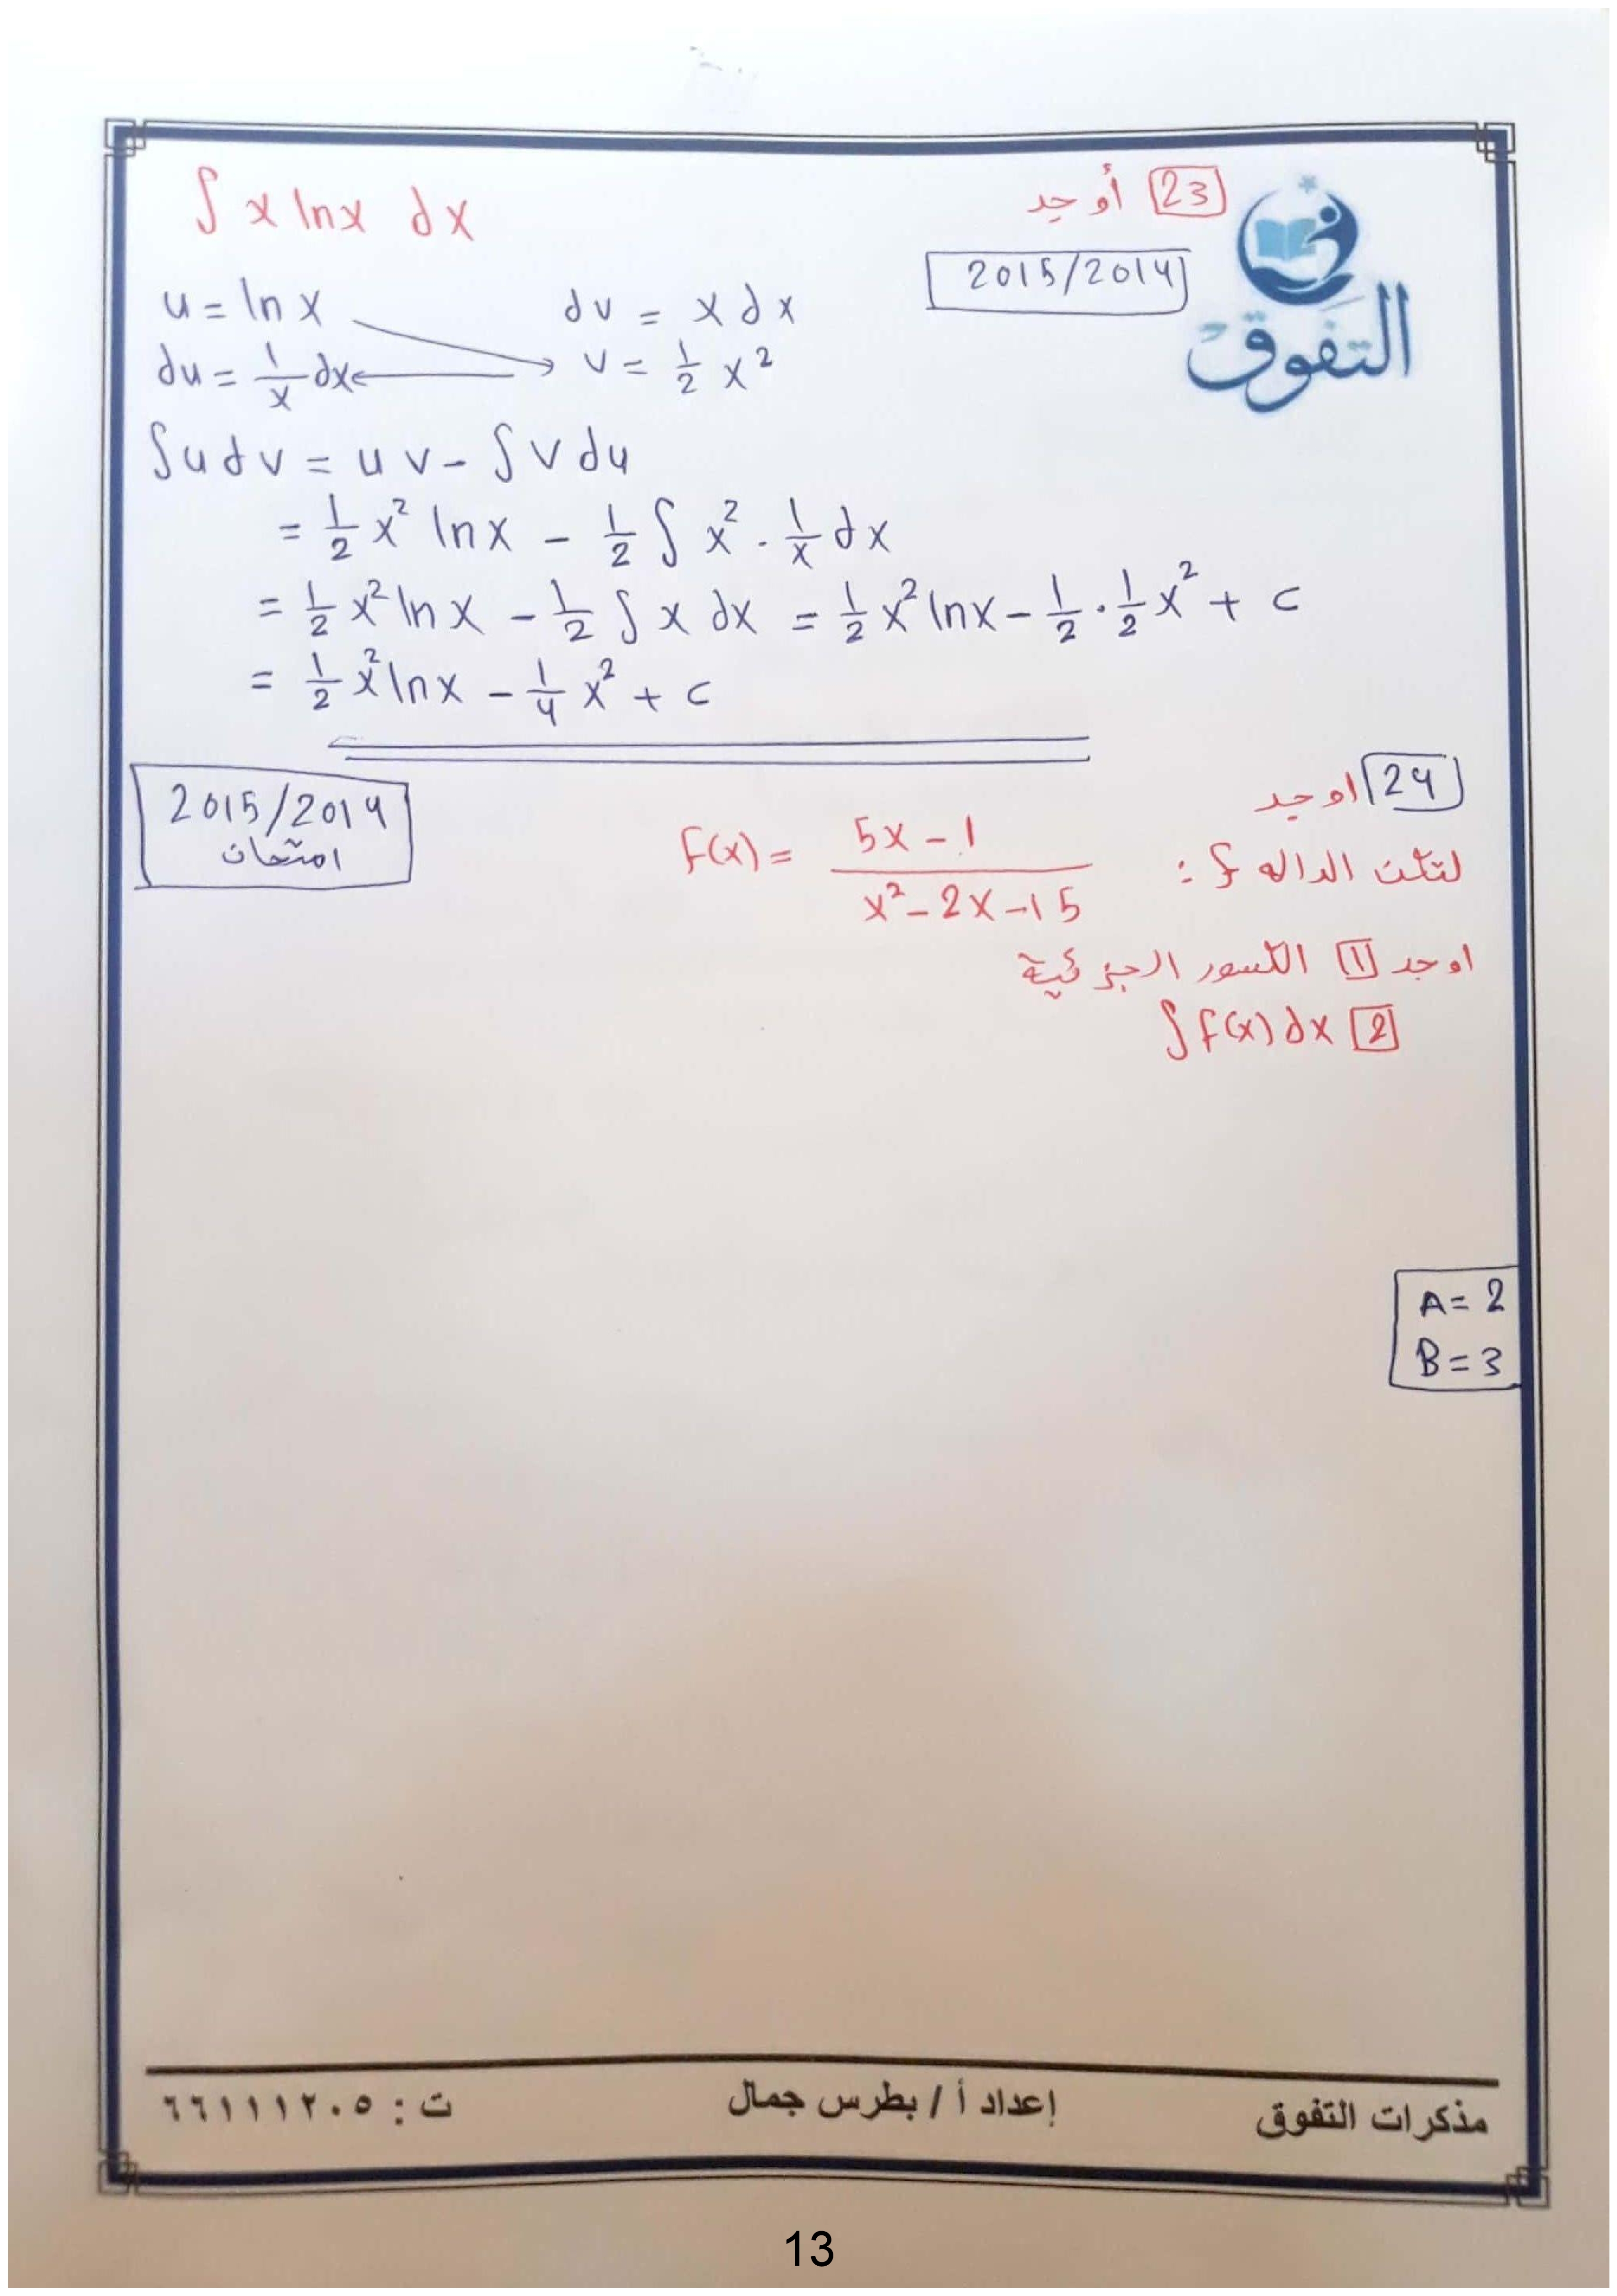 23 أوجد ∫ x lnx dx
التفوق
2015/2014
u = ln x    dv = x dx
du = 1/x dx    v = 1/2 x²
∫u dv = u v - ∫ v du
= 1/2 x² ln x - 1/2 ∫ x² . 1/x dx
= 1/2 x² ln x - 1/2 ∫ x dx = 1/2 x² lnx - 1/2 . 1/2 x² + c
= 1/2 x² lnx - 1/4 x² + c
24 اوجد
2015/2014
امتحان
لتكن الداله f : f(x) = (5x - 1)/(x² - 2x - 15)
اوجد 1 الكسور الجزئية
2 ∫ f(x) dx
A = 2
B = 3
مذكرات التفوق    إعداد أ / بطرس جمال    ت : ٦٦١١١٢٠٥
13